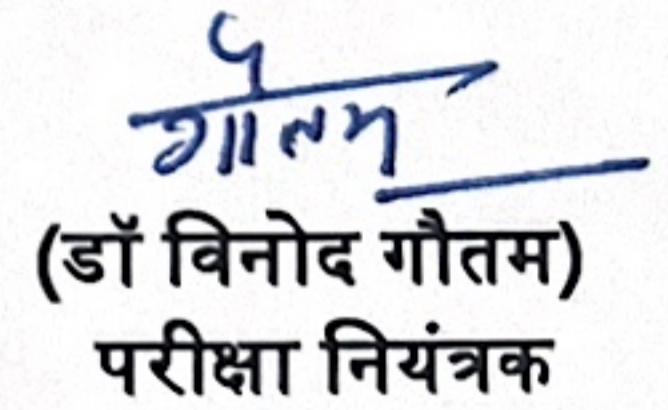 गौतम
(डॉ विनोद गौतम)
परीक्षा नियंत्रक